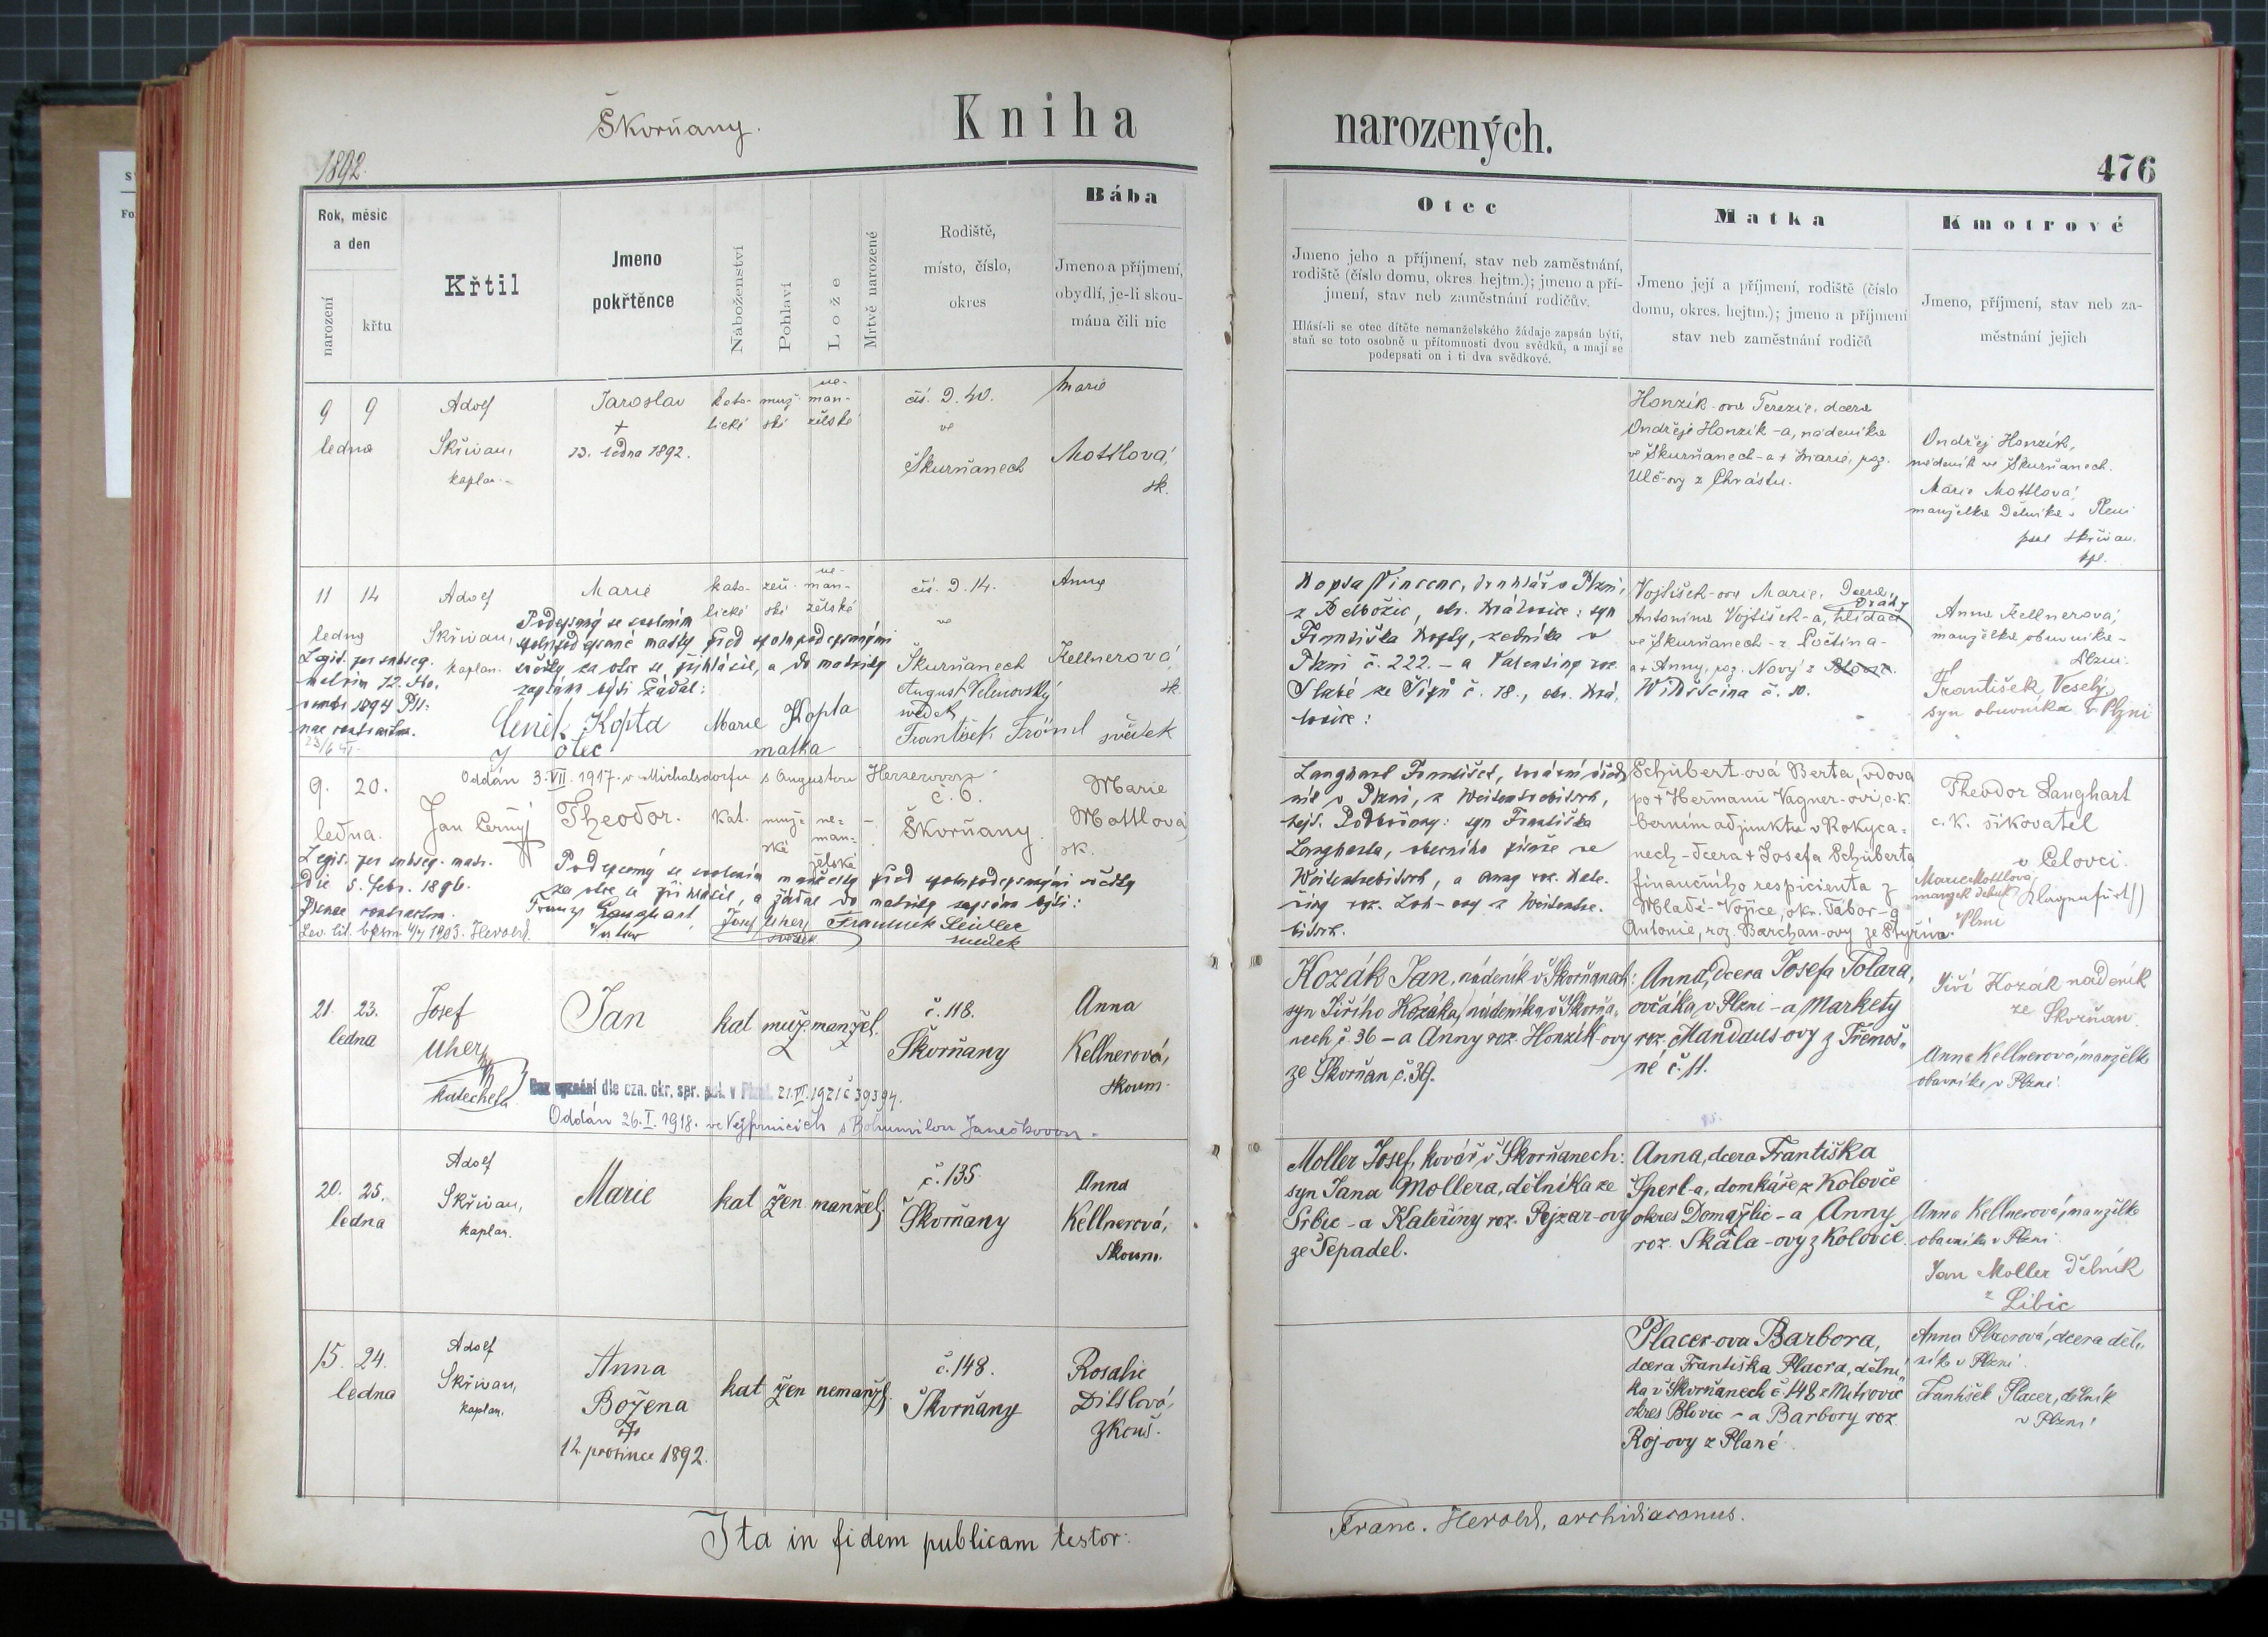 Škorňany.
Kniha
narozených.
1892.
476
Rok, měsíc
a den
narození
křtu
Křtil
Jmeno
pokřtěnce
Náboženství
Pohlaví
Lože
Mrtvě narozené
Rodiště,
místo, číslo,
okres
Bába
Jmeno a příjmení,
obydlí, je-li skou-
mána čili nic
Otec
Jmeno jeho a příjmení, stav neb zaměstnání,
rodiště (číslo domu, okres hejtm.); jmeno a pří-
jmení, stav neb zaměstnání rodičův.
Hlásí-li se otec dítěte nemanželského žádaje zapsán býti,
staň se toto osobně u přítomnosti dvou svědků, a mají se
podepsati on i ti dva svědkové.
Matka
Jmeno její a příjmení, rodiště (číslo
domu, okres. hejtm.); jmeno a příjmení
stav neb zaměstnání rodičů
Kmotrové
Jmeno, příjmení, stav neb za-
městnání jejich
9 9
ledna
Adolf
Skřivan,
kaplan.
Jaroslav
+
13. ledna 1892.
kato-
lické
muž-
ské
ne-
man-
želské
čís. D. 40.
ve
Škurňanech
Marie
Mottlová,
sk.
Honzík-ova Terezie, dcera
Ondřeje Honzík-a, nádeníka
ve Škurňanech - a + Marie, roz.
Ulč-ovy z Chrástu.
Ondřej Honzík,
nádeník ve Škurňanech.
Marie Mottlová,
manželka dělníka v Plzni
psal Skřivan,
kpl.
11 14
ledna
Adolf
Skřivan,
kaplan.
Marie
kato-
lické
žen-
ské
ne-
man-
želské
čís. D. 14.
ve
Škurňanech
Anna
Kellnerová,
sk.
Legit. per subseq.
1894
Podepsaný se svolením
spolupodepsané matky před spolupodepsanými
svědky za otce se přihlásil, a do matriky
zapsán býti žádal:
Čeněk Kopta
otec
Marie Kopta
matka
August
svědek
František svědek
Kopta Vincenc, truhlář v Plzni,
z syn
Františka Kopty, zedníka v
Plzni č. 222. - a roz.
Slabé ze č. 18.,
Vojtíšek-ova Marie, dcera
Antonína Vojtíšek-a, hlídač
dráhy
ve Škurňanech - z
a + Anny, roz. Nový z
č. 10.
Anna Kellnerová,
manželka obuvníka
Plzni.
František Veselý,
syn obuvníka v Plzni
Oddán 3. VII. 1917. v Michalsdorfu s Augustou
9. 20.
ledna.
Jan Černý
Theodor.
Kat.
muž-
ské
ne-
man-
želské
č. 6.
Škorňany.
Marie
Mottlová
sk.
Legit. per subseq. matr.
die 5. febr. 1896.
Podepsaný se svolením manželky před spolupodepsanými svědky
za otce se přihlásil, a žádal do matriky zapsán býti:
Franz Langhart,
Vater
Josef Uher
svědek
František
svědek
Langhart František,
v Plzni, z
syn Františka
Langharta, obecního
a Anny roz.
Schubert-ová Berta, vdova
po + Heřmanu Vagner-ovi, c. k.
berním adjunktu v Rokyca-
nech - dcera + Josefa Schuberta
finančního respicienta z
Mladé-Vožice, okr. Tábor - a
Antonie, roz. Barchan-ovy ze
Theodor Langhart
c. k. šikovatel
v Celovci.
(Klagenfurt)
Marie Mottlová
manžel. dělník.
Plzni
21. 23.
ledna
Josef
Uher
katecheta
Jan
kat muž. manžel.
č. 118.
Škorňany
Anna
Kellnerová,
skoum.
Bez vyznání dle ozn. okr. spr. pol. v Plzni 21. VI. 1921 č 39394.
Oddán 26. I. 1918. ve Vejprnicích s Bohumilou Janečkovou.
Kozák Jan, nádeník v Škorňanech:
syn Jiřího Kozáka, nádeníka v Škorňa-
nech č. 36 - a Anny roz. Honzík-ovy
ze Škorňan č. 39.
Anna, dcera Josefa Tolara,
ovčáka v Plzni - a Markety
roz. Mandaus-ovy z Třemoš-
né č. 11.
Jiří Kozák nádeník
ze Škorňan.
Anna Kellnerová, manželka
obuvníka v Plzni
20. 25.
ledna
Adolf
Skřivan,
kaplan.
Marie
kat žen manžel.
č. 135.
Škorňany
Anna
Kellnerová,
Skoum.
Moller Josef, kovář v Škorňanech:
syn Jana Mollera, dělníka ze
Srbic - a Kateřiny roz. Pejzar-ovy
ze Šepadel.
Anna, dcera Františka
Šperl-a, domkáře z Koloveč
okres Domažlic - a Anny
roz. Skála-ovy z Koloveč.
Anna Kellnerová, manželka
obuvníka v Plzni.
Jan Moller dělník
z Libic
15. 24.
ledna
Adolf
Skřivan,
kaplan.
Anna
Božena
12. prosince 1892.
kat žen nemanžel.
č. 148.
Škorňany
Rosalie
Dittlová,
zkouš.
Placer-ova Barbora,
dcera Františka Placra, dělní-
ka v Škorňanech č. 148 z Mitrovic
okres Blovic - a Barbory roz.
Roj-ovy z Plané
Anna Placrová, dcera děl-
níka v Plzni.
František Placer, dělník
v Plzni
Ita in fidem publicam testor:
Franc. Herold, archidiaconus.